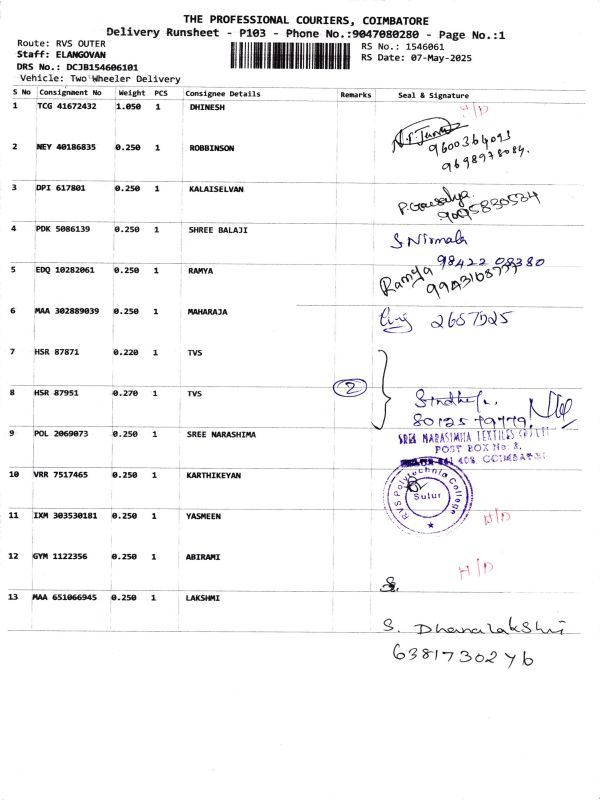 THE PROFESSIONAL COURIERS, COIMBATORE
Delivery Runsheet - P103 - Phone No.:9047080280 - Page No.:1
Route: RVS OUTER
RS No.: 1546061
Staff: ELANGOVAN
RS Date: 07-May-2025
DRS No.: DCJB154606101
Vehicle: Two Wheeler Delivery
S No Consignment No Weight PCS Consignee Details Remarks Seal & Signature
1 TCG 41672432 1.050 1 DHINESH H/D
9600364093
9698978084.
2 NEY 40186835 0.250 1 ROBBINSON
3 DPI 617801 0.250 1 KALAISELVAN P.Gowsalya
9095830534
4 PDK 5086139 0.250 1 SHREE BALAJI S. Nirmala
98422 08380
5 EDQ 10282061 0.250 1 RAMYA Ramya
6 MAA 302889039 0.250 1 MAHARAJA 2657525
7 HSR 87871 0.220 1 TVS
8 HSR 87951 0.270 1 TVS 2
80125 79779
9 POL 2069073 0.250 1 SREE NARASHIMA SREE NARASIMHA TEXTILES
POST BOX No.
COIMBATORE
10 VRR 7517465 0.250 1 KARTHIKEYAN RVS Polytechnic College Sulur
11 IXM 303530181 0.250 1 YASMEEN H/D
12 GYM 1122356 0.250 1 ABIRAMI H/D
S.
13 MAA 651066945 0.250 1 LAKSHMI
S. Dhanalakshmi
6381730246